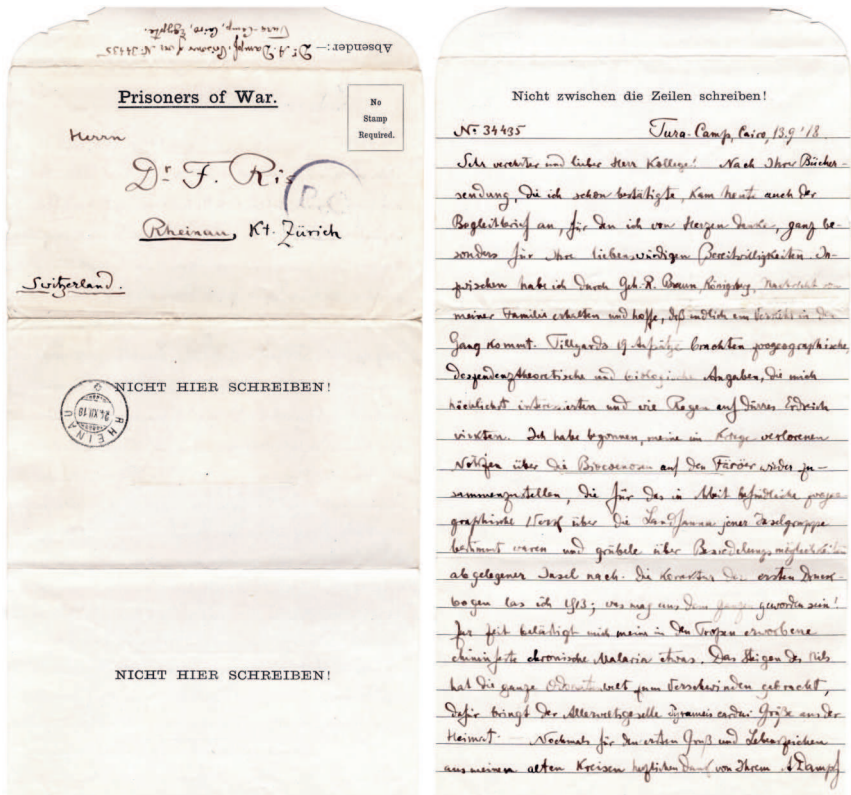 Absender:— Dr. A. Dampf, Prisoner of war N. 34435
Tura-Camp, Cairo, Egypte.
Prisoners of War.
No
Stamp
Required.
Herrn
Dr F. Ris
Rheinau, Kt. Zürich
Switzerland.
NICHT HIER SCHREIBEN!
RHEINAU
24.XII.18
NICHT HIER SCHREIBEN!
Nicht zwischen die Zeilen schreiben!
No 34435 Tura-Camp, Cairo, 13.9.'18.
Sehr verehrter und lieber Herr Kollege! Nach Ihrer Bücher-
sendung, die ich schon bestätigte, kam heute auch der
Begleitbrief an, für den ich von Herzen danke, ganz be-
sonders für Ihre liebenswürdigen Bereitwilligkeiten. In-
zwischen habe ich durch Geh. R. Braun, Königsbg, Nachricht v.
meiner Familie erhalten und hoffe, daß endlich ein Verkehr in den
Gang kommt. Tillyards 19 Aufsätze brachten zoogeographische,
deszendenztheoretische und biologische Angaben, die mich
höchlichst interessierten und wie Regen auf dürres Erdreich
wirkten. Ich habe begonnen, meine im Kriege verlorenen
Notizen über die Biocoenosen auf den Färöer wieder zu-
sammenzustellen, die für das in Arbeit befindliche zoogeo-
graphische Werk über die Landfauna jener Inselgruppe
bestimmt waren und grübele über Besiedelungsmöglichkeiten
abgelegener Insel nach. Die Korrektur der ersten Druck-
bogen las ich 1913; was mag aus dem ganzen geworden sein!
Zur Zeit belästigt mich meine in den Tropen erworbene
chininfeste chronische Malaria etwas. Das Steigen des Nils
hat die ganze Odonatenwelt zum Verschwinden gebracht,
dafür bringt der Allerweltsgeselle Pyrameis cardui Grüße aus der
Heimat. — Nochmals für den ersten Gruß und Lebenszeichen
aus meinen alten Kreisen herzlichen Dank von Ihrem A Dampf